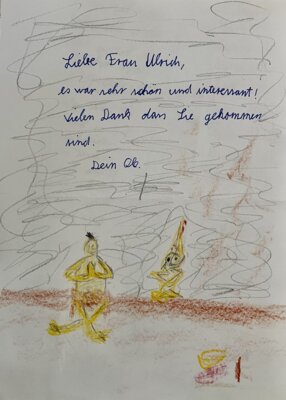 Liebe Frau Ulrich,
es war sehr schön und interessant!
Vielen Dank dass Sie gekommen
sind.
Dein Ob.